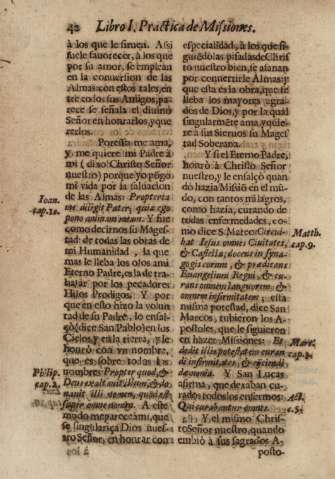 42 Libro I. Practica de Missiones.
à los que le siruen. Assi
suele fauorecer, à los que
por su amor, se emplean
en la conuersion de las
Almas: con estos tales, en
tre todos sus Amigos, pa-
rece se señala el diuino
Señor en honrarlos, y que
rerlos.
Por esso me ama,
y me quiere mi Padre à
mi (dixo Christo Señor
nuestro) porque yo pōgo
mi vida por la saluacion
de las Almas Propterea
me diligit Pater, quia ego
pono animam meam. Y fue
como decirnos su Mages-
tad: de todas las obras de
mi Humanidad, la que
mas le lleba los ojos à mi
Eterno Padre, es la de tra-
bajar por los pecadores
Hijos Prodigos. Y por
que en esto hizo la volun
tad de su Padre, lo ensal-
çò (dice San Pablo) en los
Cielos, y en la tierra, y le
honrò con vn nombre,
que es sobre todos los
nombres Propter quod, &
Deus exaltauit illum, & do-
nauit illi nomen, quod est
super omne nomen. A este
modo me parece à mi, que
se singulariça Dios nues-
tro Señor, en honrar con
Ioan.
cap. 10.
Philip.
cap. 2.
especialidad, à los que si-
guiēdo las pisadas de Chris
to nuestro bien, se afanan
por conuertirle Almas: y
que esta es la obra, que se
lleba los mayores agra-
dos de Dios, y por la qual
singularmēte ama, y quie-
re à sus Sieruos su Mages
tad Soberana.
Y si el Eterno Padre,
honrò à Christo Señor
nuestro, y le ensalçò quan
do hazia Missiō en el mū-
do, con tantos milagros,
como hazia, curando de
todas enfermedades, co-
mo dice S. Mateo: Circui-
bat Iesus omnes Ciuitates,
& Castella, docens in syna-
gogis eorum, & prædicans
Euangelium Regni, & cu-
rans omnem languorem, &
omnem infirmitatem; esta
misma potestad, dice San
Marcos, tubieron los A-
postoles, que le siguieron
en hazer Missiones: Et
dedit illis potestatem curan
di infirmitates, & eijciendi
dæmonia. Y San Lucas
afirma, que dexaban cu-
rados todos los enfermos.
Qui curabantur omnes.
Y el mismo Chris-
to Señor nuestro, quando
embiò à sus sagrados A-
posto-
Matth.
cap. 9.
Marc.
cap. 3.
Act.
c. 5.